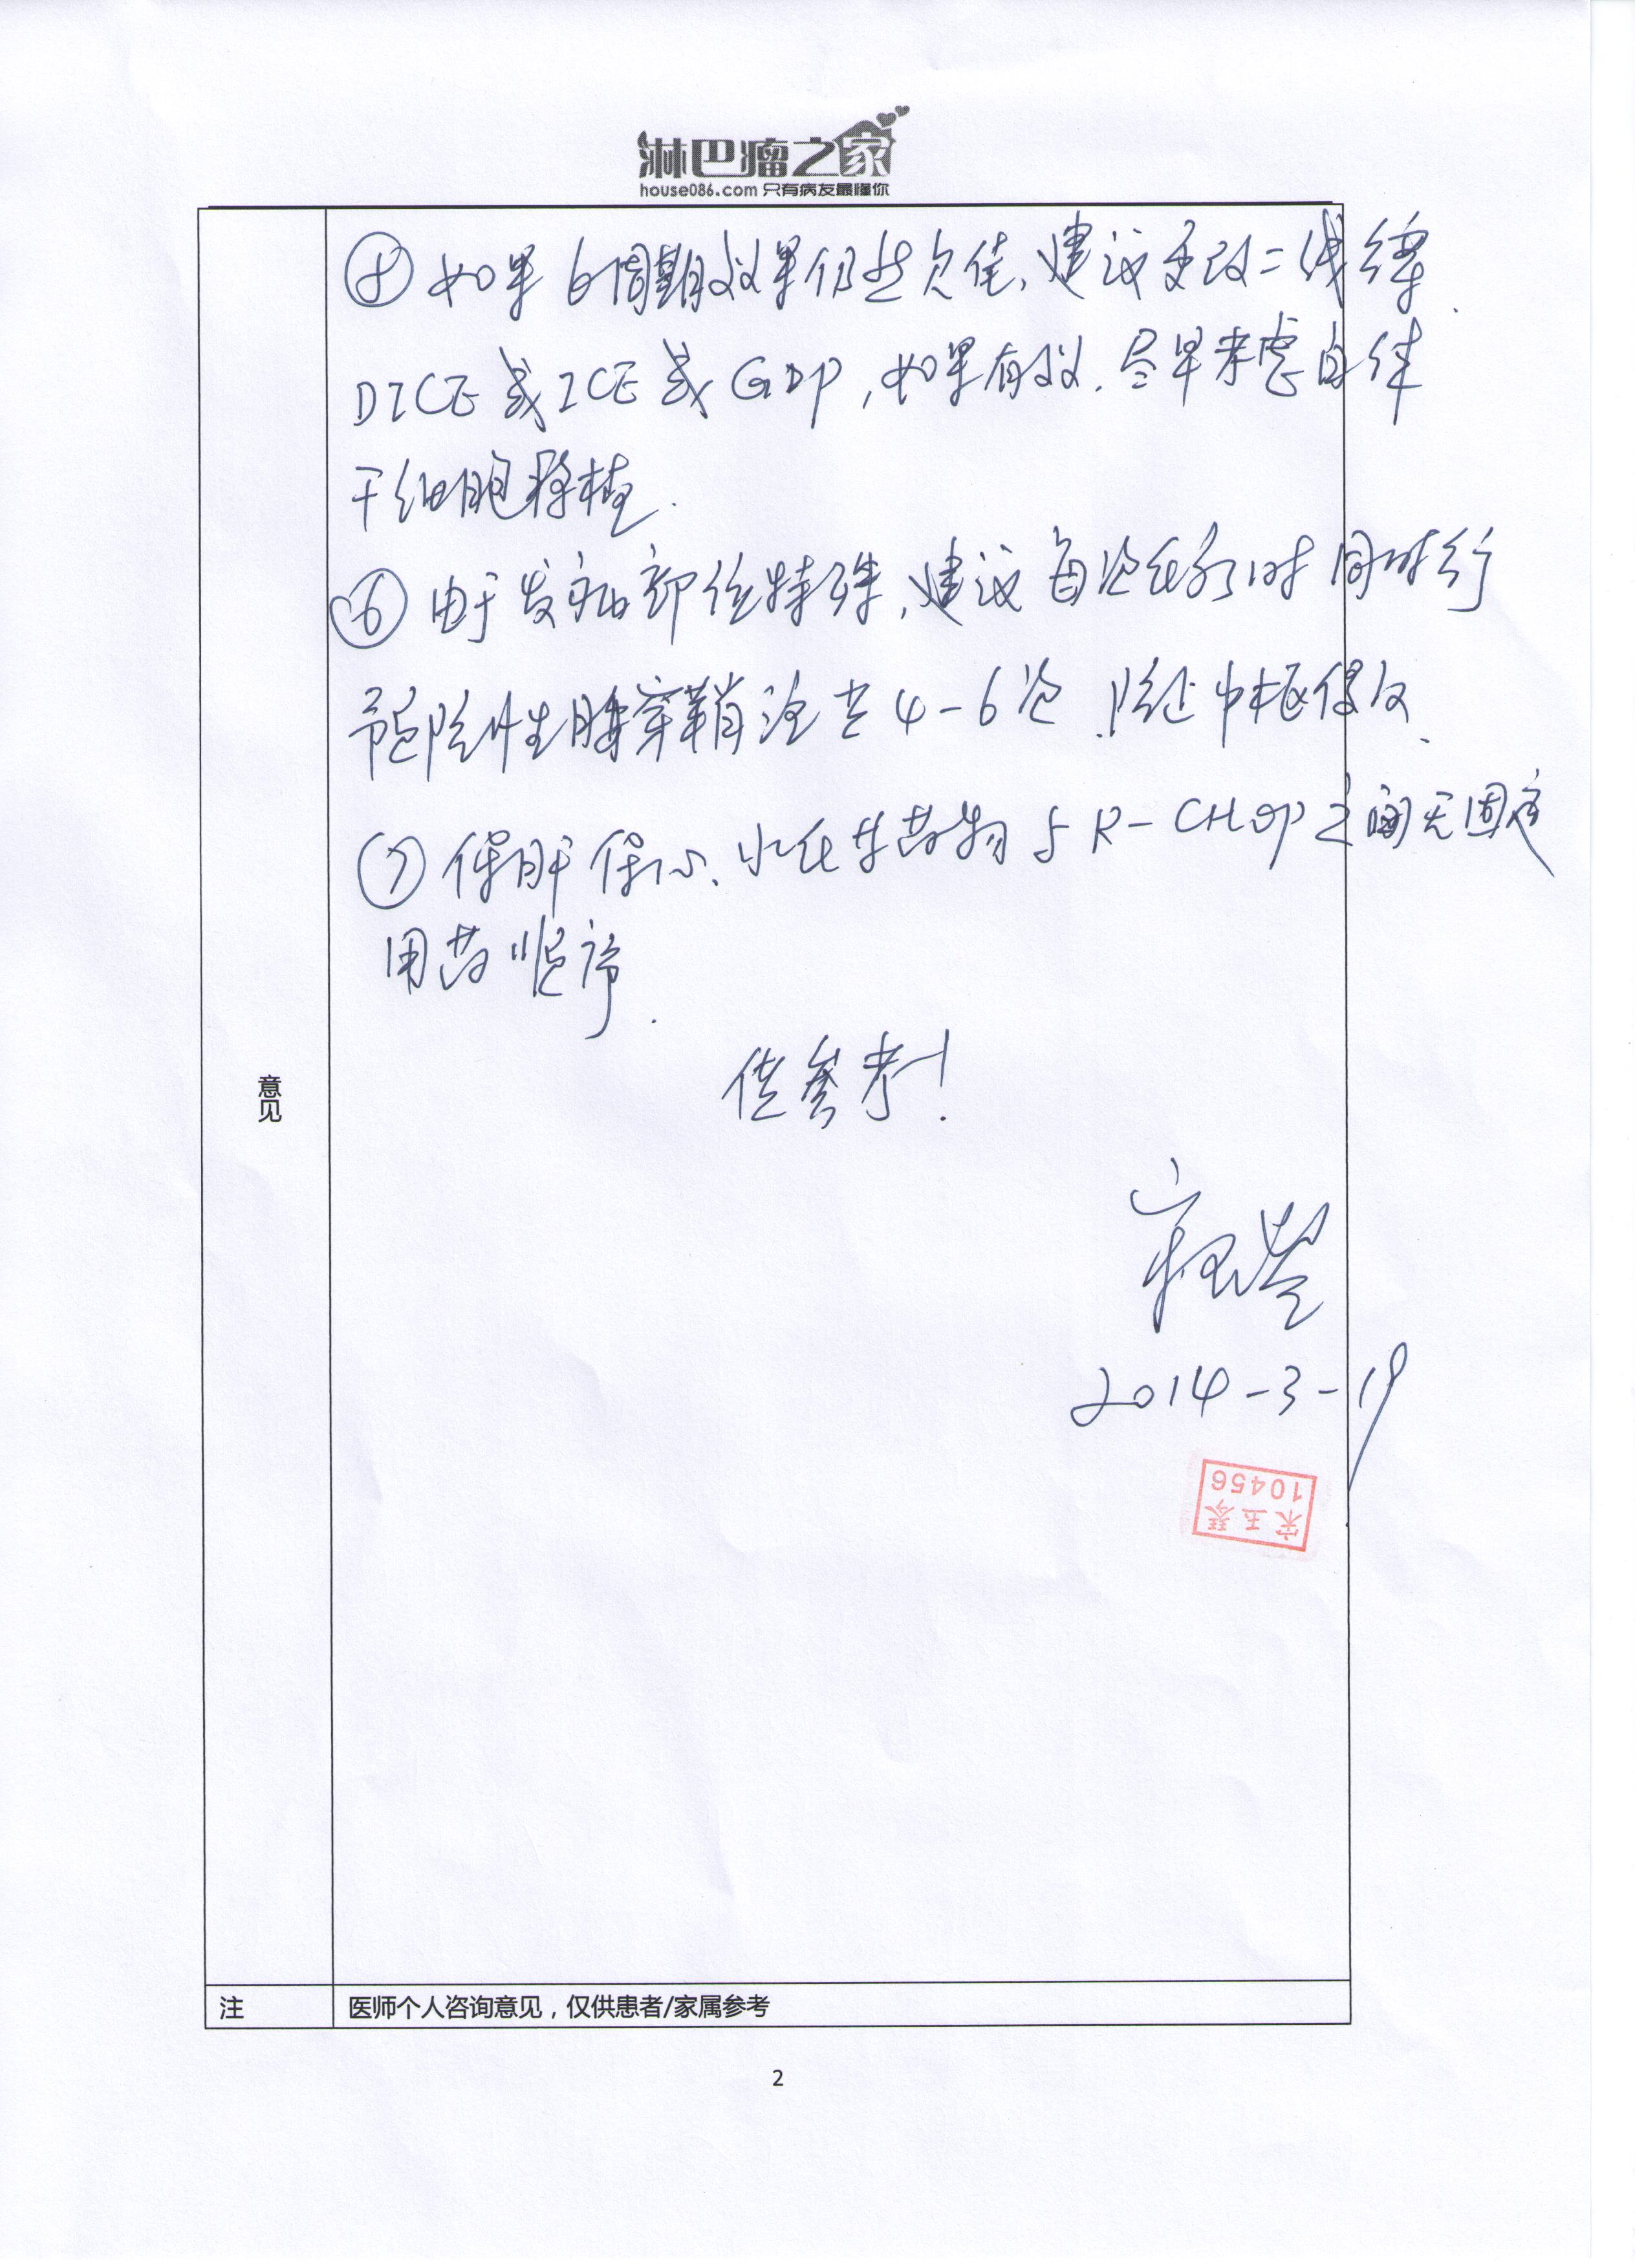 淋巴瘤之家
house086.com 只有病友最懂你
⑤ 如果6周期效果仍然欠佳,建议更改二线
DICE或ICE或GDP,如果有效.尽早考虑自体
干细胞移植.
⑥ 由于发病部位特殊,建议每次化疗时同时行
预防性腰穿鞘注共4-6次.防止中枢侵及.
⑦ 保肝保心、水化等药物与R-CHOP之间无固定
用药顺序.
供参考!
意见
2014-3-19
10456
宋玉琴
注
医师个人咨询意见,仅供患者/家属参考
2